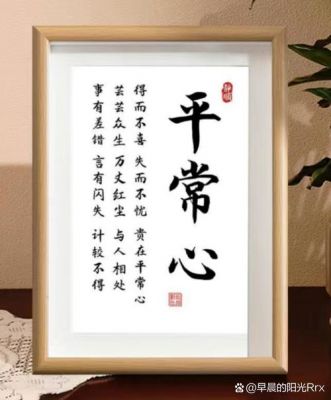 平常心
得而不喜 失而不忧 貴在平常心
芸芸众生 万丈红尘 与人相处
事有差错 言有闪失 计较不得
@早晨的阳光Rrx